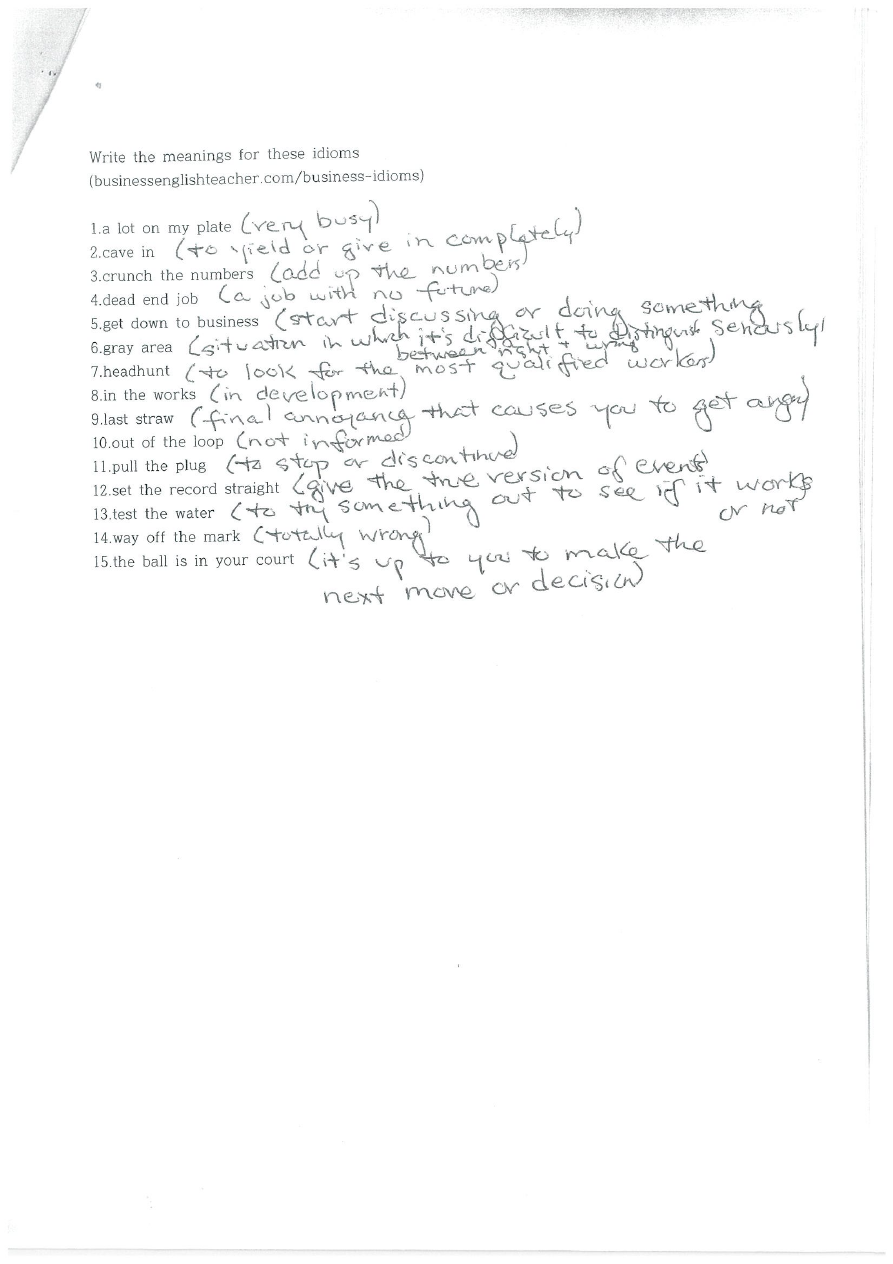 Write the meanings for these idioms
(businessenglishteacher.com/business-idioms)
1.a lot on my plate (very busy)
2.cave in (to yield or give in completely)
3.crunch the numbers (add up the numbers)
4.dead end job (a job with no future)
5.get down to business (start discussing or doing something seriously)
6.gray area (situation in which it's difficult to distinguish
between right + wrong
7.headhunt (to look for the most qualified worker)
8.in the works (in development)
9.last straw (final annoyance that causes you to get angry)
10.out of the loop (not informed)
11.pull the plug (to stop or discontinue)
12.set the record straight (give the true version of event)
13.test the water (to try something out to see if it works
or not
14.way off the mark (totally wrong)
15.the ball is in your court (it's up to you to make the
next move or decision)